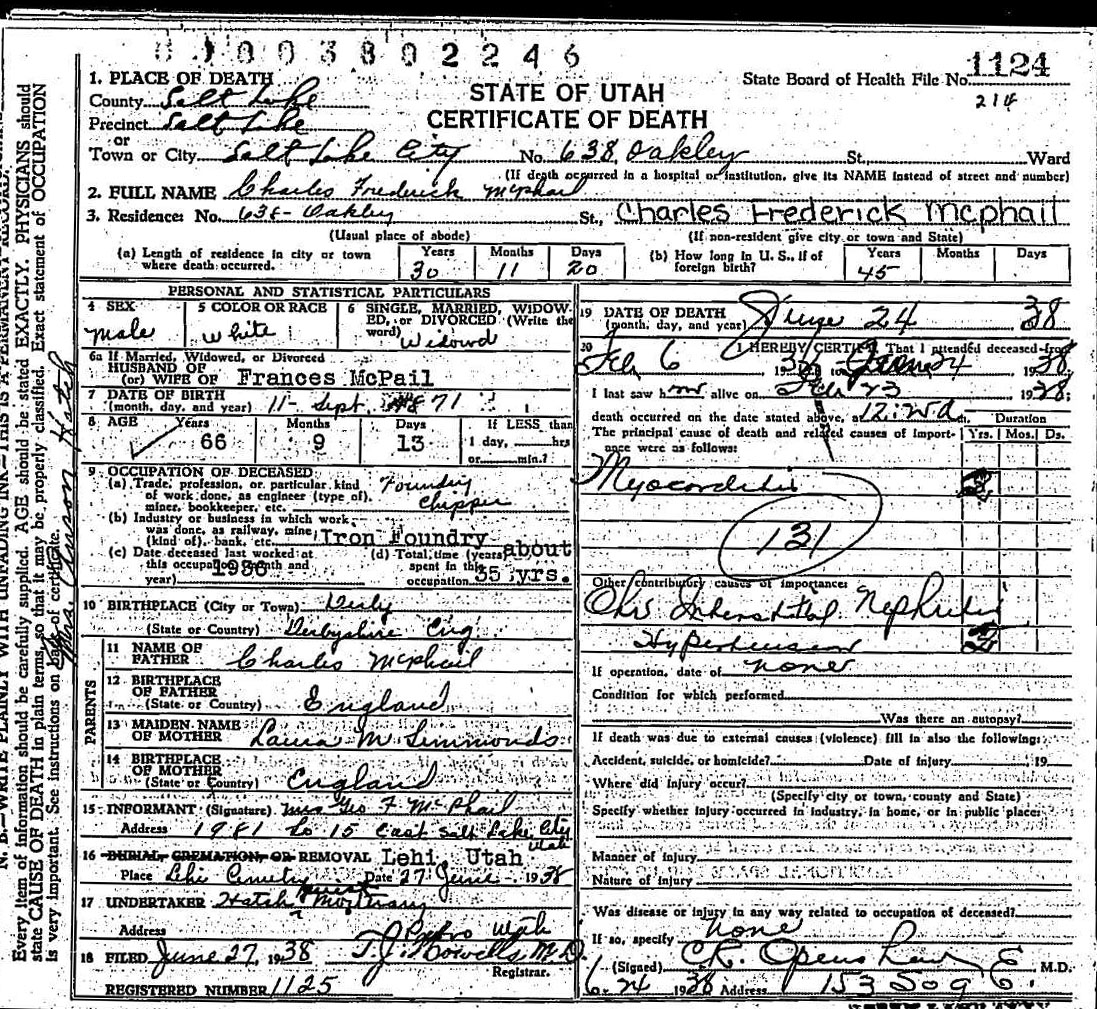 0 1 0 0 3 8 0 2 2 4 6
State Board of Health File No. 1124
214
STATE OF UTAH
CERTIFICATE OF DEATH
1. PLACE OF DEATH
County Salt Lake
Precinct Salt Lake
or
Town or City Salt Lake City No. 638 Oakley St., Ward
(If death occurred in a hospital or institution, give its NAME instead of street and number)
2. FULL NAME Charles Frederick Mcphail
3. Residence: No. 638 - Oakley St., Charles Frederick Mcphail
(Usual place of abode) (If non-resident give city or town and State)
(a) Length of residence in city or town where death occurred. Years 30 Months 11 Days 20
(b) How long in U. S., if of foreign birth? Years 45 Months Days
PERSONAL AND STATISTICAL PARTICULARS
4 SEX Male
5 COLOR OR RACE White
6 SINGLE, MARRIED, WIDOWED, or DIVORCED (Write the word) Widowd
6a If Married, Widowed, or Divorced
HUSBAND OF
(or) WIFE OF Frances McPail
7 DATE OF BIRTH
(month, day, and year) 11 - Sept. 1871
8 AGE Years 66 Months 9 Days 13 If LESS than 1 day, hrs or min.?
9 OCCUPATION OF DECEASED
(a) Trade, profession, or particular kind of work done, as engineer (type of), miner, bookkeeper, etc. Foundry Chipper
(b) Industry or business in which work was done, as railway, mine (kind of), bank, etc. Iron Foundry
(c) Date deceased last worked at this occupation (month and year) 1936
(d) Total time (years) spent in this occupation about 35 yrs.
10 BIRTHPLACE (City or Town) Derby
(State or Country) Derbyshire Eng
PARENTS
11 NAME OF FATHER Charles Mcphail
12 BIRTHPLACE OF FATHER
(State or Country) England
13 MAIDEN NAME OF MOTHER Laura M Simmonds
14 BIRTHPLACE OF MOTHER
(State or Country) England
15 INFORMANT (Signature) Mrs Geo F McPhail
Address 1981 So 15 East Salt Lake City Utah
16 BURIAL, CREMATION, OR REMOVAL Lehi, Utah
Place Lehi Cemetry Date 27 June 1938
17 UNDERTAKER Hatch Mortuary
Address Utah
18 FILED June 27, 1938 T. J. Howells, M.D.
Registrar.
REGISTERED NUMBER 1125
19 DATE OF DEATH
(month, day, and year) June 24 38
20 I HEREBY CERTIFY That I attended deceased from
Feb 6 1936 to June 24 1938
I last saw him alive on Feb 23 1938;
death occurred on the date stated above, at m.
The principal cause of death and related causes of importance were as follows: Duration Yrs. Mos. Ds.
Myocarditis
131
Other contributory causes of importance:
Chr Interstitial Nephritis
Hypertension
If operation, date of none
Condition for which performed
Was there an autopsy?
If death was due to external causes (violence) fill in also the following:
Accident, suicide, or homicide? Date of injury 19
Where did injury occur?
(Specify city or town, county and State)
Specify whether injury occurred in industry, in home, or in public place:
Manner of injury
Nature of injury
Was disease or injury in any way related to occupation of deceased?
If so, specify none
(Signed) M.D.
6-24 1938 Address 153 So 9 E.
N. B.—WRITE PLAINLY WITH UNFADING INK—THIS IS A PERMANENT RECORD.
Every item of information should be carefully supplied. AGE should be stated EXACTLY. PHYSICIANS should
state CAUSE OF DEATH in plain terms, so that it may be properly classified. Exact statement of OCCUPATION
is very important. See instructions on back of certificate.